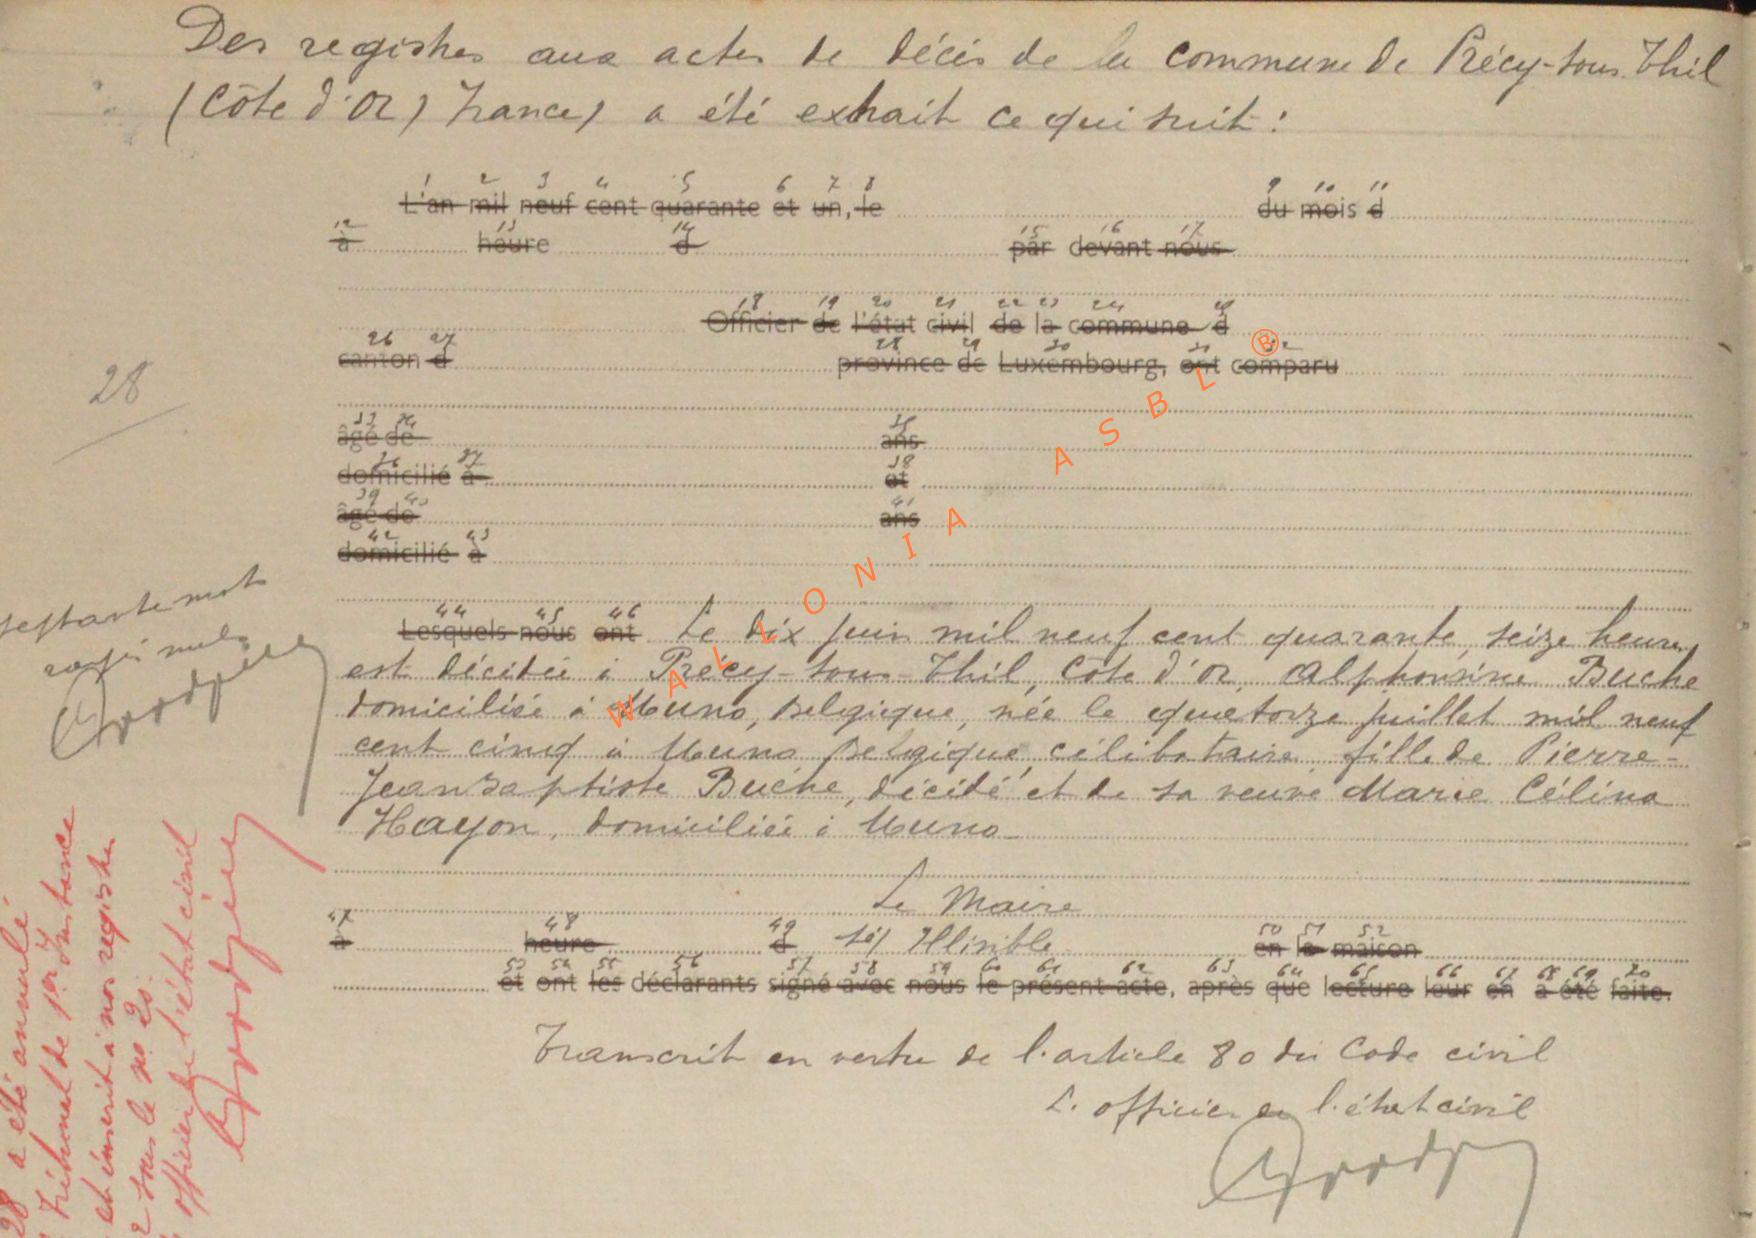 Des registres aux actes de décès de la commune de Précy-sous-Thil
(Côte d'Or) France) a été extrait ce qui suit :
1 2 3 4 5 6 7 8 9 10 11
L'an mil neuf cent quarante et un, le du mois d
12 13 14 15 16 17
à heure d par devant nous
18 19 20 21 22 23 24 25
Officier de l'état civil de la commune d
26 27 28 29 30 31 32
canton d province de Luxembourg, ont comparu
28
33 34 35
âgé de ans
36 37 38
domicilié à et
39 40 41
âgé de ans
42 43
domicilié à
septante mots
rayés nuls
44 45 46
Lesquels nous ont Le dix juin mil neuf cent quarante, seize heures
est décédée à Précy-sous-Thil, Côte d'Or, Alphonsine Buche
domiciliée à Muno, Belgique, née le quatorze juillet mil neuf
cent cinq à Muno Belgique, célibataire, fille de Pierre-
Jean Baptiste Buche, décédé et de sa veuve Marie Célina
Hayon, domiciliée à Muno
Le Maire
47 48 49 50 51 52
à heure d (sé) Illisible en la maison
53 54 55 56 57 58 59 60 61 62 63 64 65 66 67 68 69 70
et ont les déclarants signé avec nous le présent acte, après que lecture leur en a été faite.
Transcrit en vertu de l'article 80 du Code civil
L'officier de l'état civil
28 a été annulé
Tribunal de 1er Instance
et inscrit à nos registres
sous le no 20.
officier de l'état civil
WALLONIA ASBL ®